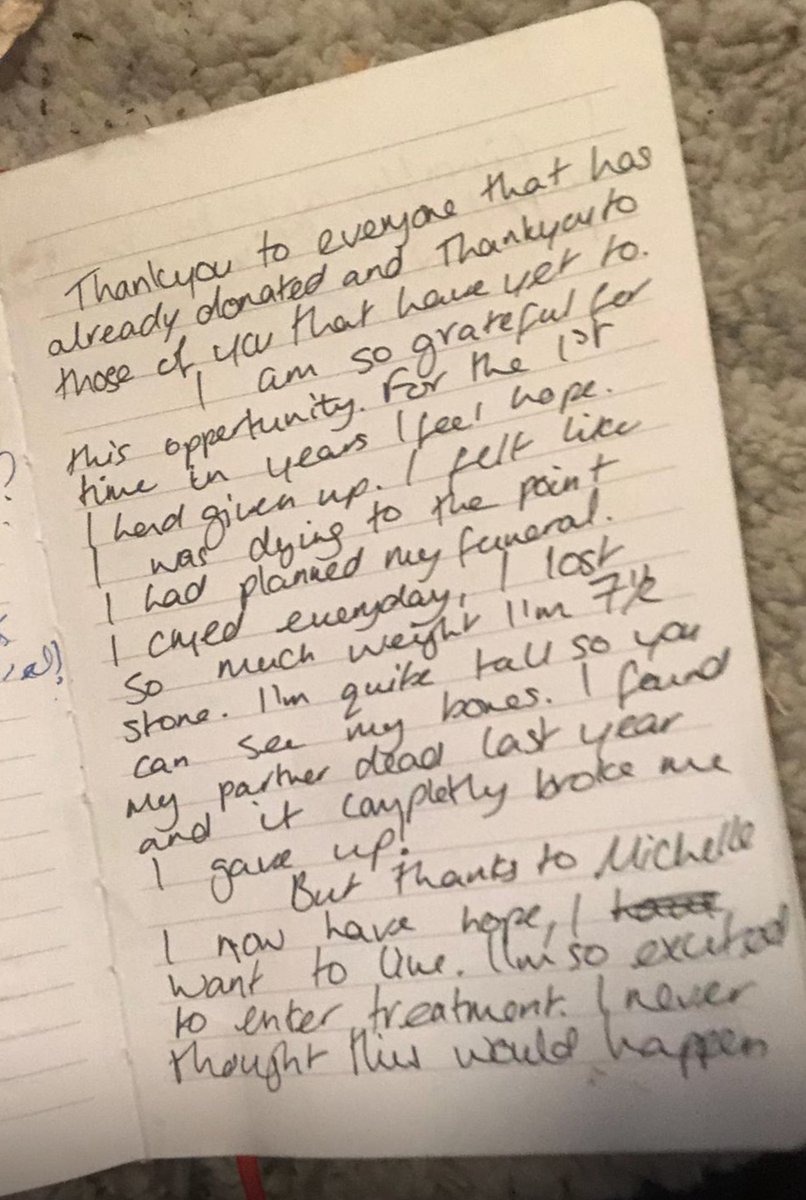 Thankyou to everyone that has
already donated and Thankyou to
those of you that have yet to.
I am so grateful for
this oppertunity. For the 1st
time in years I feel hope.
I had given up. I felt like
I was dying to the point
I had planned my funeral.
I cryed everyday, I lost
so much weight I'm 7½
stone. I'm quite tall so you
can see my bones. I found
my partner dead last year
and it completly broke me
I gave up!
But thanks to Michelle
I now have hope, I
want to live. I'm so excited
to enter treatment. I never
thought this would happen